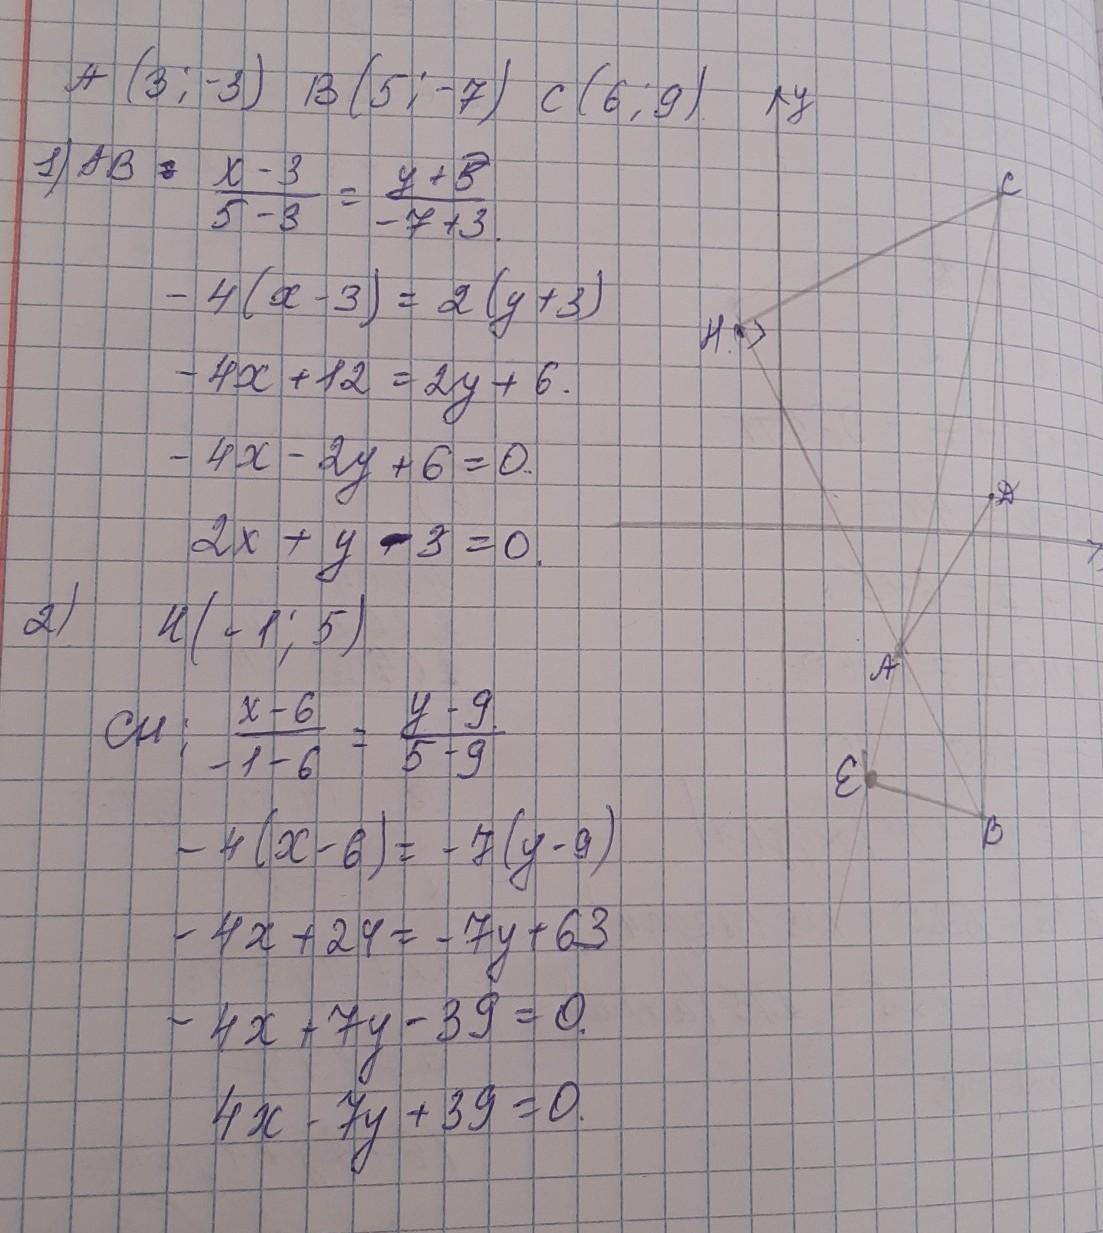 A (3 ; -3) B (5 ; -7) C (6 ; 9)
1) AB : (x - 3)/(5 - 3) = (y + 3)/(-7 + 3)
- 4(x - 3) = 2(y + 3)
- 4x + 12 = 2y + 6.
- 4x - 2y + 6 = 0.
2x + y - 3 = 0.
2) H (-1 ; 5)
CH : (x - 6)/(-1 - 6) = (y - 9)/(5 - 9)
- 4(x - 6) = -7(y - 9)
- 4x + 24 = -7y + 63
- 4x + 7y - 39 = 0.
4x - 7y + 39 = 0.
y
C
H
D
A
E
B